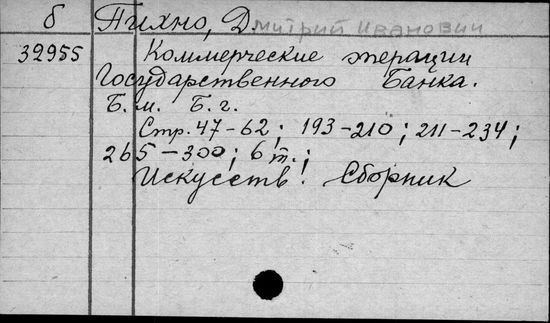 б Пихно, Дмитрий Иванович
32955 Коммерческие операции
Государственного Банка.
Б. м. Б. г.
Стр. 47-62; 193-210; 211-234;
265-300; 6 т.;
Искусств! Сборник